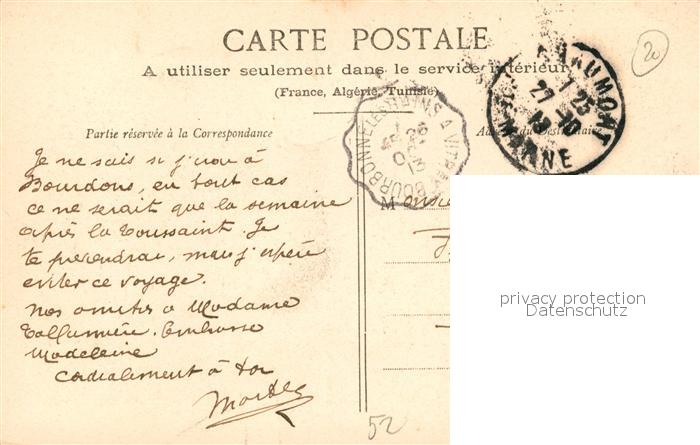 CARTE POSTALE
A utiliser seulement dans le service intérieur
(France, Algérie, Tunisie)
Partie réservée à la Correspondance
Je ne sais si j'irai à
Bourdons, en tout cas
ce ne serait que la semaine
après la Toussaint. Je
te préviendrai, mais j'espère
éviter ce voyage.
Nos amitiés à Madame
Embrasse
Madeleine
Cordialement à toi
CHAUMONT
27 -10
HTE MARNE
BOURBONNE LES BAINS A VITREY
M onsieu
privacy protection
Datenschutz
20
52